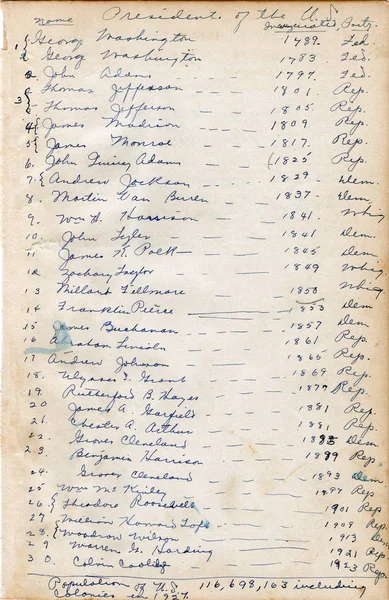 President of the U.S.
name Inaugurated, Party
1 { George Washington 1789. Fed.
2 George Washington 1783. Fed.
2. John Adams - - 1797. Fed.
3 { Thomas Jefferson - 1801. Rep.
Thomas Jefferson - 1805. Rep.
4 { James Madison 1809 Rep.
5 { James Monroe - - 1817. Rep.
6. John Quincy Adams - 1825 Rep.
7. { Andrew Jackson - - - 1829. Dem.
8. Martin Van Buren - - 1837. Dem.
9. Wm H. Harrison - - 1841. Whig
10 John Tyler - - - 1841 Dem.
11 James K. Polk - - - 1845 Dem
12 Zachary Taylor - - - 1849 Whig
13 Millard Fillmore - - 1850 Whig
14 Franklin Pierce - 1853 Dem
15 James Buchanan - - - 1857 Dem
16 Abraham Lincoln - - - 1861 Rep.
17 Andrew Johnson - - - 1865 Rep.
18. Ulysses S. Grant - - 1869 Rep
19. Rutherford B. Hayes - - 1877 Rep.
20 James A. Garfield - - 1881 Rep.
21. Chester A. Arthur - - 1881 Rep.
22. Grover Cleveland - - 1885 Dem
23. Benjamin Harrison - - 1889 Rep.
24. Grover Cleveland - - - 1893 Dem
25 Wm McKinley - - - 1897 Rep
26. { Theodore Roosevelt - - 1901 Rep
27. William Howard Taft - - 1909 Rep.
28. { Woodrow Wilson - - 1913 Dem
29 Warren G. Harding - - 1921 Rep.
30. Calvin Coolidge - - - 1923 Rep.
Population of U.S. 116,698,163 including
Colonies in 1927.